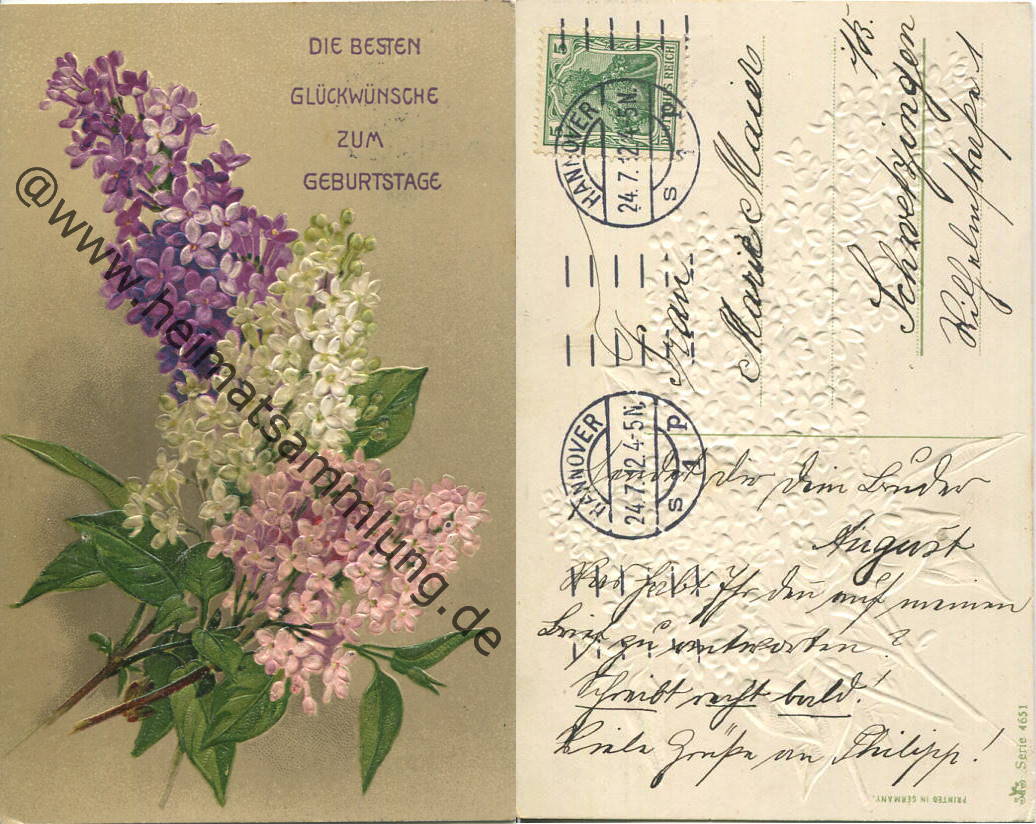 DIE BESTEN
GLÜCKWÜNSCHE
ZUM
GEBURTSTAGE
@www.heimatsammlung.de
5 5
DEUTSCHES REICH
HANNOVER
24.7.12.4-5N.
S 1 P
Frau
Marie Maier
Schwetzingen
i/B.
Wilhelmstraße 1
HANNOVER
24.7.12.4-5N.
S 1 P
Sendet dir dein Bruder
August
Was habt Ihr den auf meinen
Brief zu antworten?
Schreibt recht bald!
Viele Grüße an Philipp!
PRINTED IN GERMANY.
Serie 4651